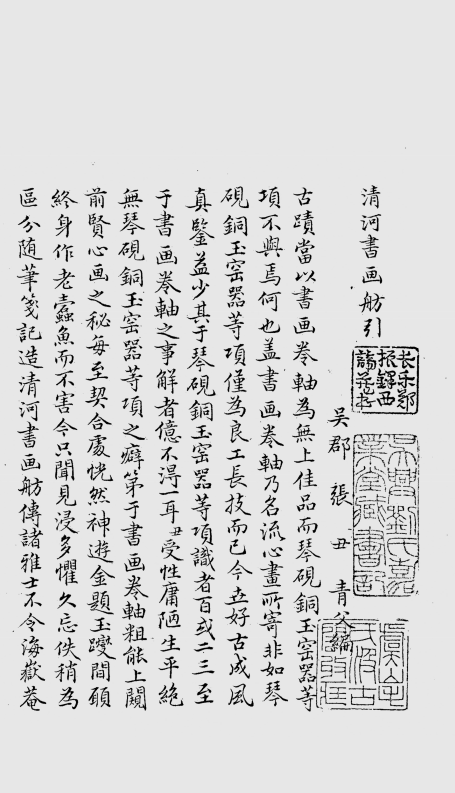 清河書画舫引
吴郡張丑青父編
古蹟當以書画卷軸為無上佳品而琴硯銅玉窑器等
項不與焉何也盖書画卷軸乃名流心畫所寄非如琴
硯銅玉窑器等項僅為良工長技而已今世好古成風
真鑒益少其于琴硯銅玉窑器等項識者百或二三至
于書画卷軸之事解者億不淂一耳丑受性庸陋生平絶
無琴硯銅玉窑器等項之癖第于書画卷軸粗能上闚
前賢心画之秘每至契合處恍然神遊金題玉躞間頋
終身作老蠹魚而不害今只聞見浸多懼久忘佚稍為
區分随筆箋記造清河書画舫傳諸雅士不令海嶽菴
長樂鄭
振鐸西
諦藏書